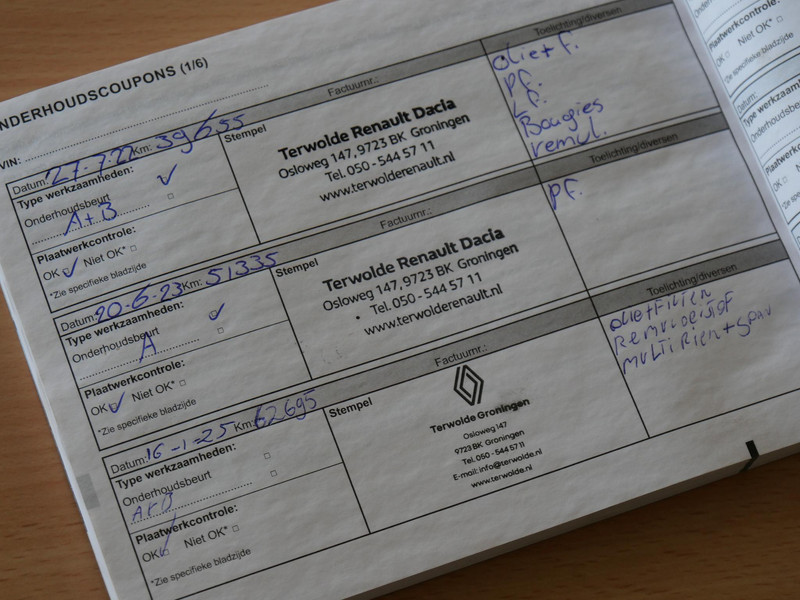 ONDERHOUDSCOUPONS (1/6)
VIN:
Factuurnr.:
Toelichting/diversen
Datum: 27-7-22 Km: 39655
Type werkzaamheden:
Onderhoudsbeurt
A+B
Plaatwerkcontrole:
OK Niet OK*
*Zie specifieke bladzijde
Stempel
Terwolde Renault Dacia
Osloweg 147, 9723 BK Groningen
Tel. 050 - 544 57 11
www.terwolderenault.nl
Olie+f.
Pf.
Lf.
Bougies
remvl.
Factuurnr.:
Toelichting/diversen
Datum: 20-6-23 Km: 51335
Type werkzaamheden:
Onderhoudsbeurt
A
Plaatwerkcontrole:
OK Niet OK*
*Zie specifieke bladzijde
Stempel
Terwolde Renault Dacia
Osloweg 147, 9723 BK Groningen
Tel. 050 - 544 57 11
www.terwolderenault.nl
pf.
Factuurnr.:
Toelichting/diversen
Datum: 16-1-25 Km: 62695
Type werkzaamheden:
Onderhoudsbeurt
Plaatwerkcontrole:
OK Niet OK*
*Zie specifieke bladzijde
Stempel
Terwolde Groningen
Osloweg 147
9723 BK Groningen
Tel. 050 - 544 57 11
E-mail: info@terwolde.nl
www.terwolde.nl
Remvloeistof
Multi Riem + Span
Plaatwerkcontrole
OK Niet OK*
*Zie specifieke bladzijde
Datum: